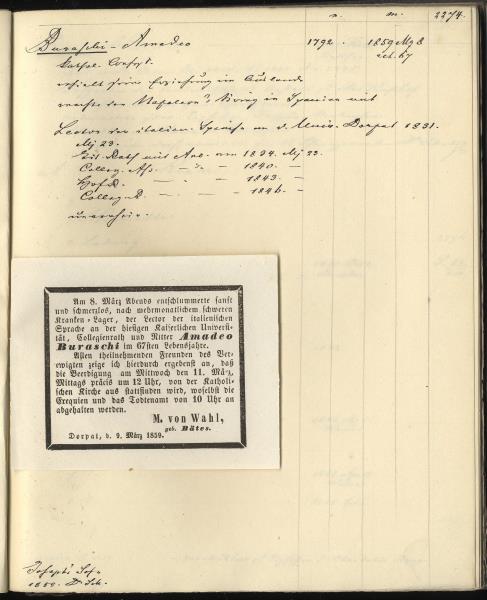 n. m. 2274.
Buraschi - Amadeo 1792. 1859 Mz 8
Kathol. Confess. aet. 67
erhielt seine Erziehung im Auslande
machte den Napoleon's Krieg in Spanien mit
Lector der italien. Sprache an d. Univ. Dorpat 1831.
Mz 23.
Tit. Rath mit Anc. von 1834. Mz 23.
Colleg. Ass. - " - - 1840. -
HofR. - - - 1843. -
Colleg.R. - - - 1846. -
Am 8. März Abends entschlummerte sanft
und schmerzlos, nach mehrmonatlichem schweren
Kranken-Lager, der Lector der italienischen
Sprache an der hiesigen Kaiserlichen Universi-
tät, Collegienrath und Ritter Amadeo
Buraschi im 67sten Lebensjahre.
Allen theilnehmenden Freunden des Ver-
ewigten zeige ich hierdurch ergebenst an, daß
die Beerdigung am Mittwoch den 11. März,
Mittags präcis um 12 Uhr, von der Katholi-
schen Kirche aus stattfinden wird, woselbst die
Exequien und das Todtenamt von 10 Uhr an
abgehalten werden.
M. von Wahl,
geb. Bätes.
Dorpat, d. 9. März 1859.
Joseph's Sohn
1859.